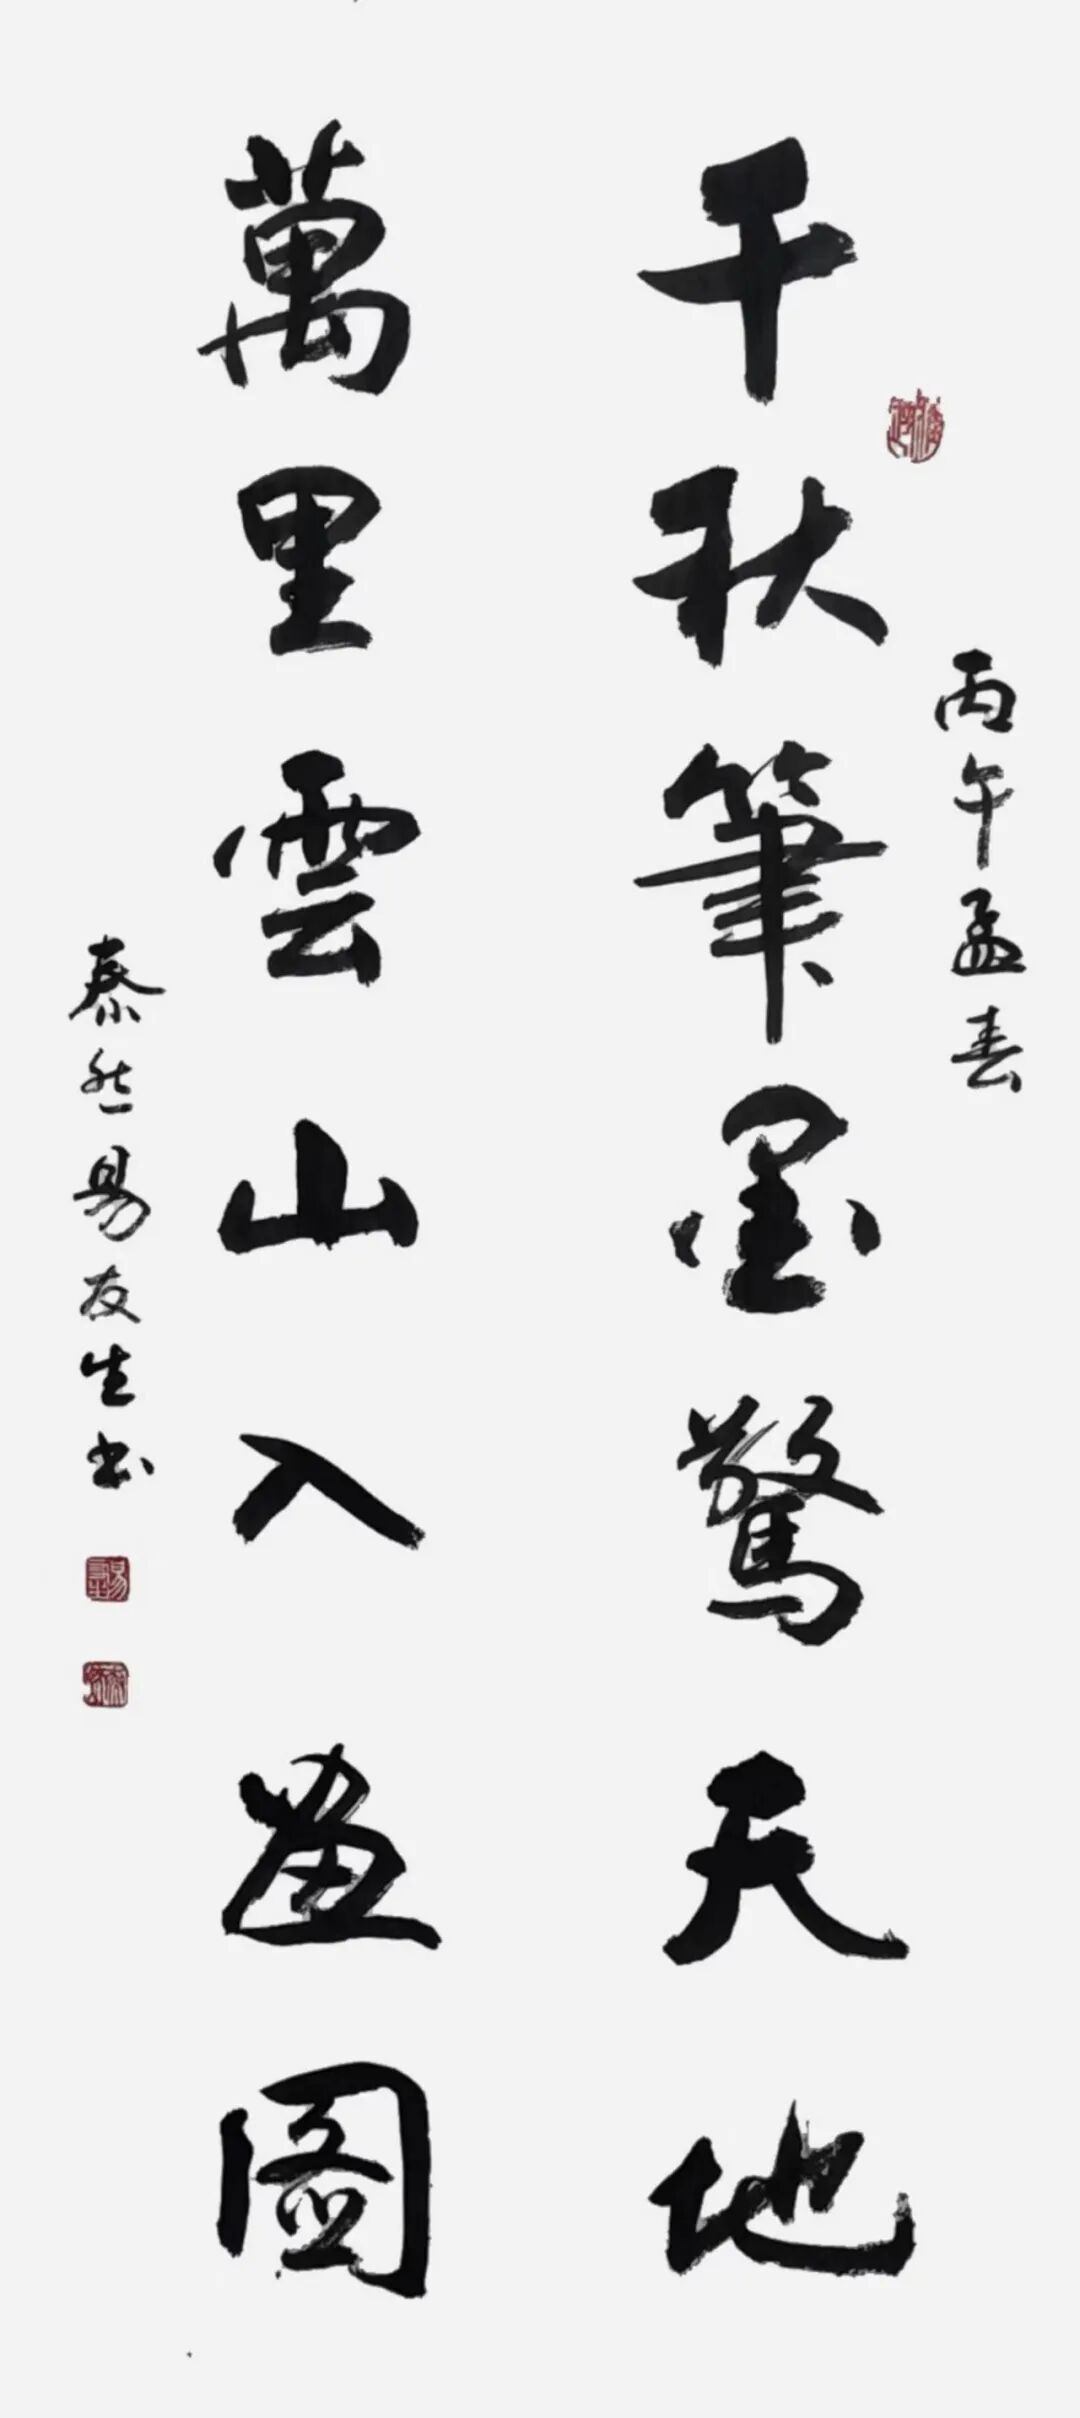 丙午孟春
千秋筆墨驚天地
萬里雲山入畫圖
泰然易友生书